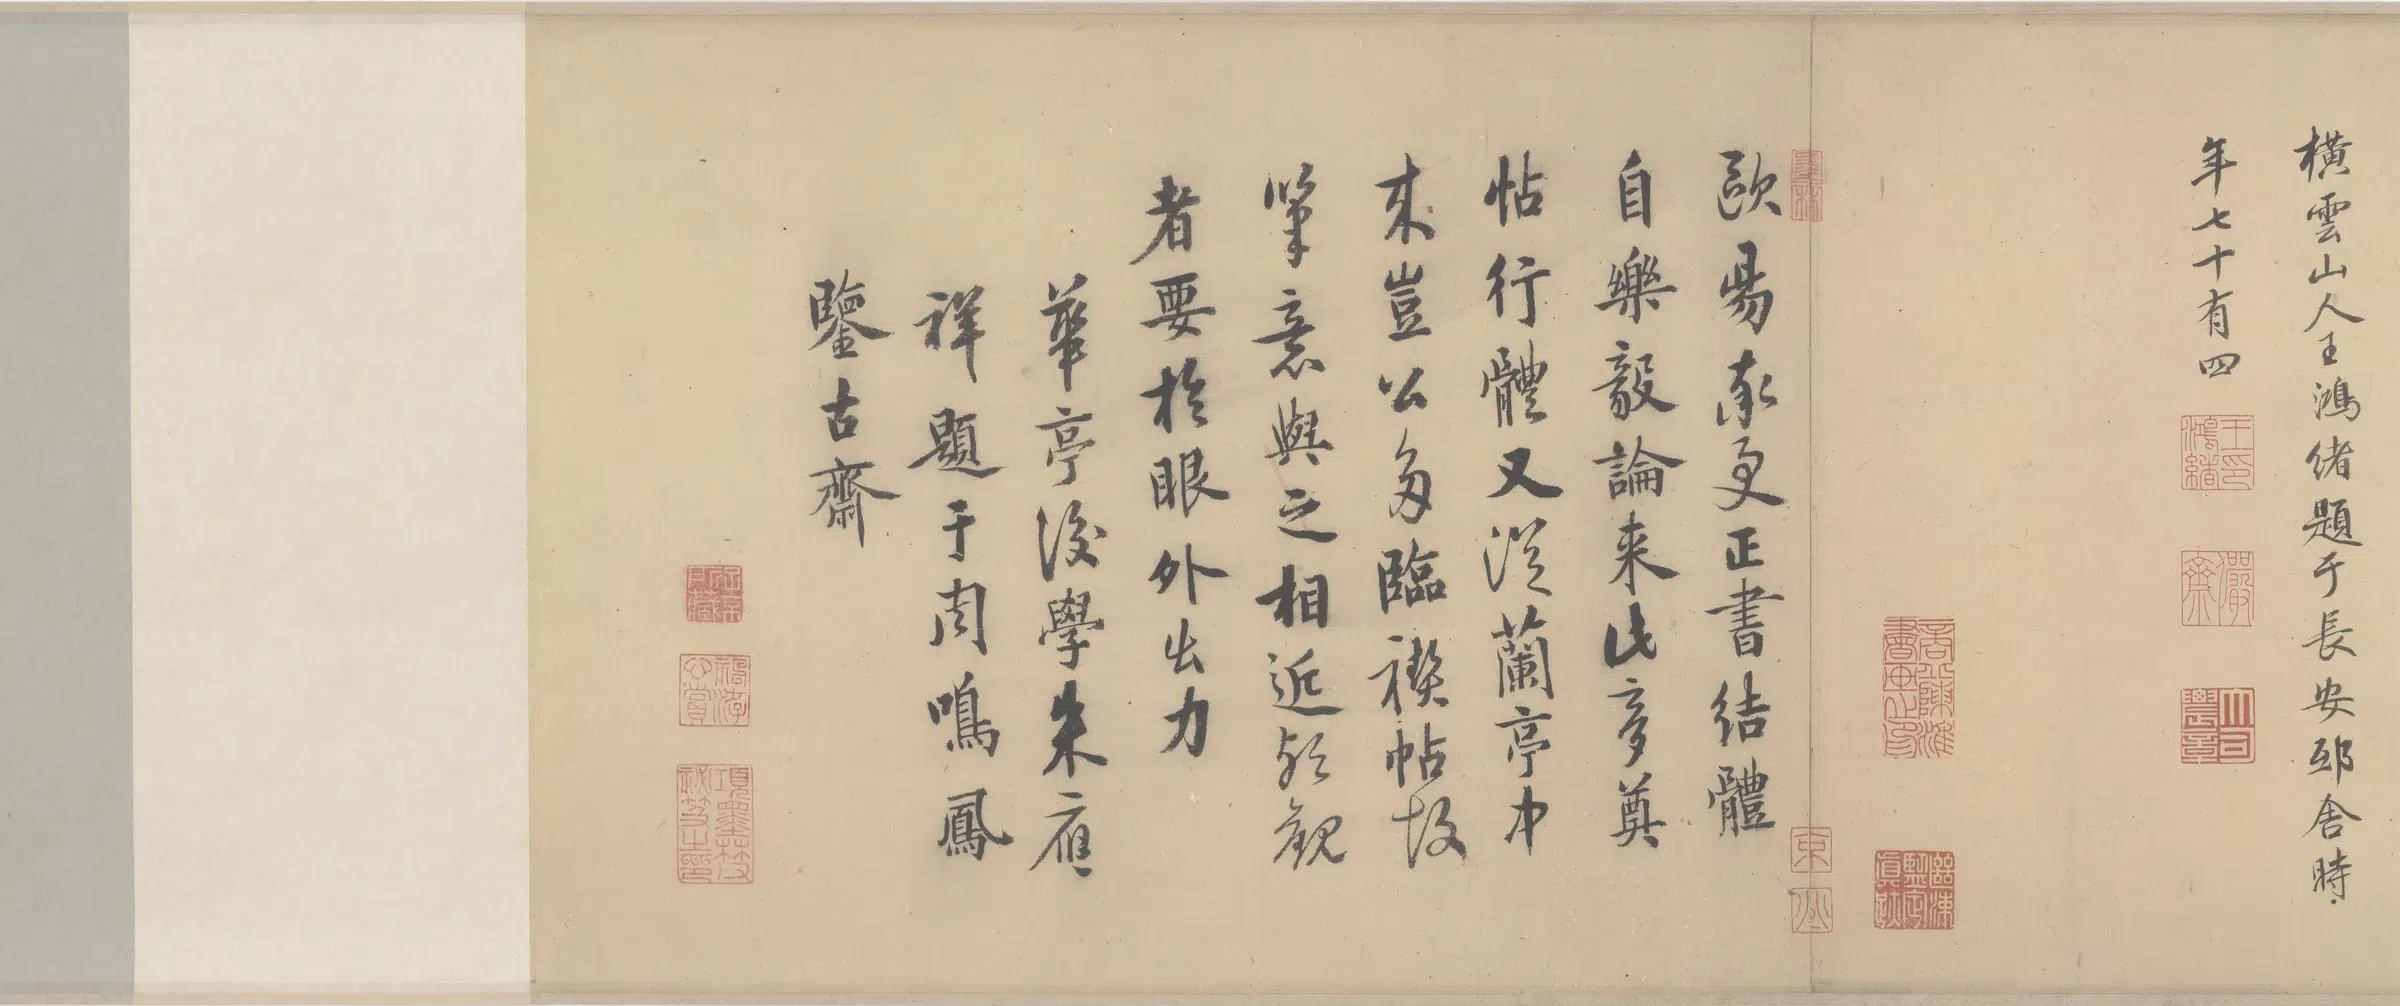 橫雲山人王鴻緒題于長安邸舍時
年七十有四
王鴻緒印
儼齋
大司農章
歐昜率更正書結體
自樂毅論来此夢奠
帖行體又從蘭亭中
來豈公多臨禊帖故
筆意與之相近欤觀
者要於眼外出力
華亭後學朱應
祥題于周鳴鳳
鑒古齋